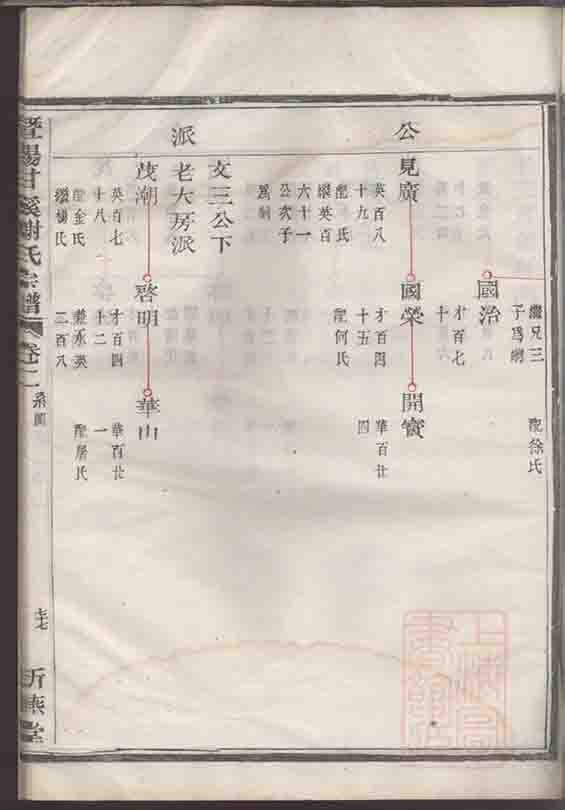 繼兄三
子為嗣
配徐氏
國治
才百七
十
公
見廣
英百八
十九
配氏
繼英百
六十一
公次子
為嗣
國榮
才百四
十五
配何氏
開寶
華百廿
四
文三公下
老大房派
派
茂潮
英百七
十八
配金氏
繼楊氏
啓明
才百四
十二
三百八
華山
華百廿
一
配屠氏
暨陽甘溪謝氏宗譜
卷二
系圖
上海圖書館藏